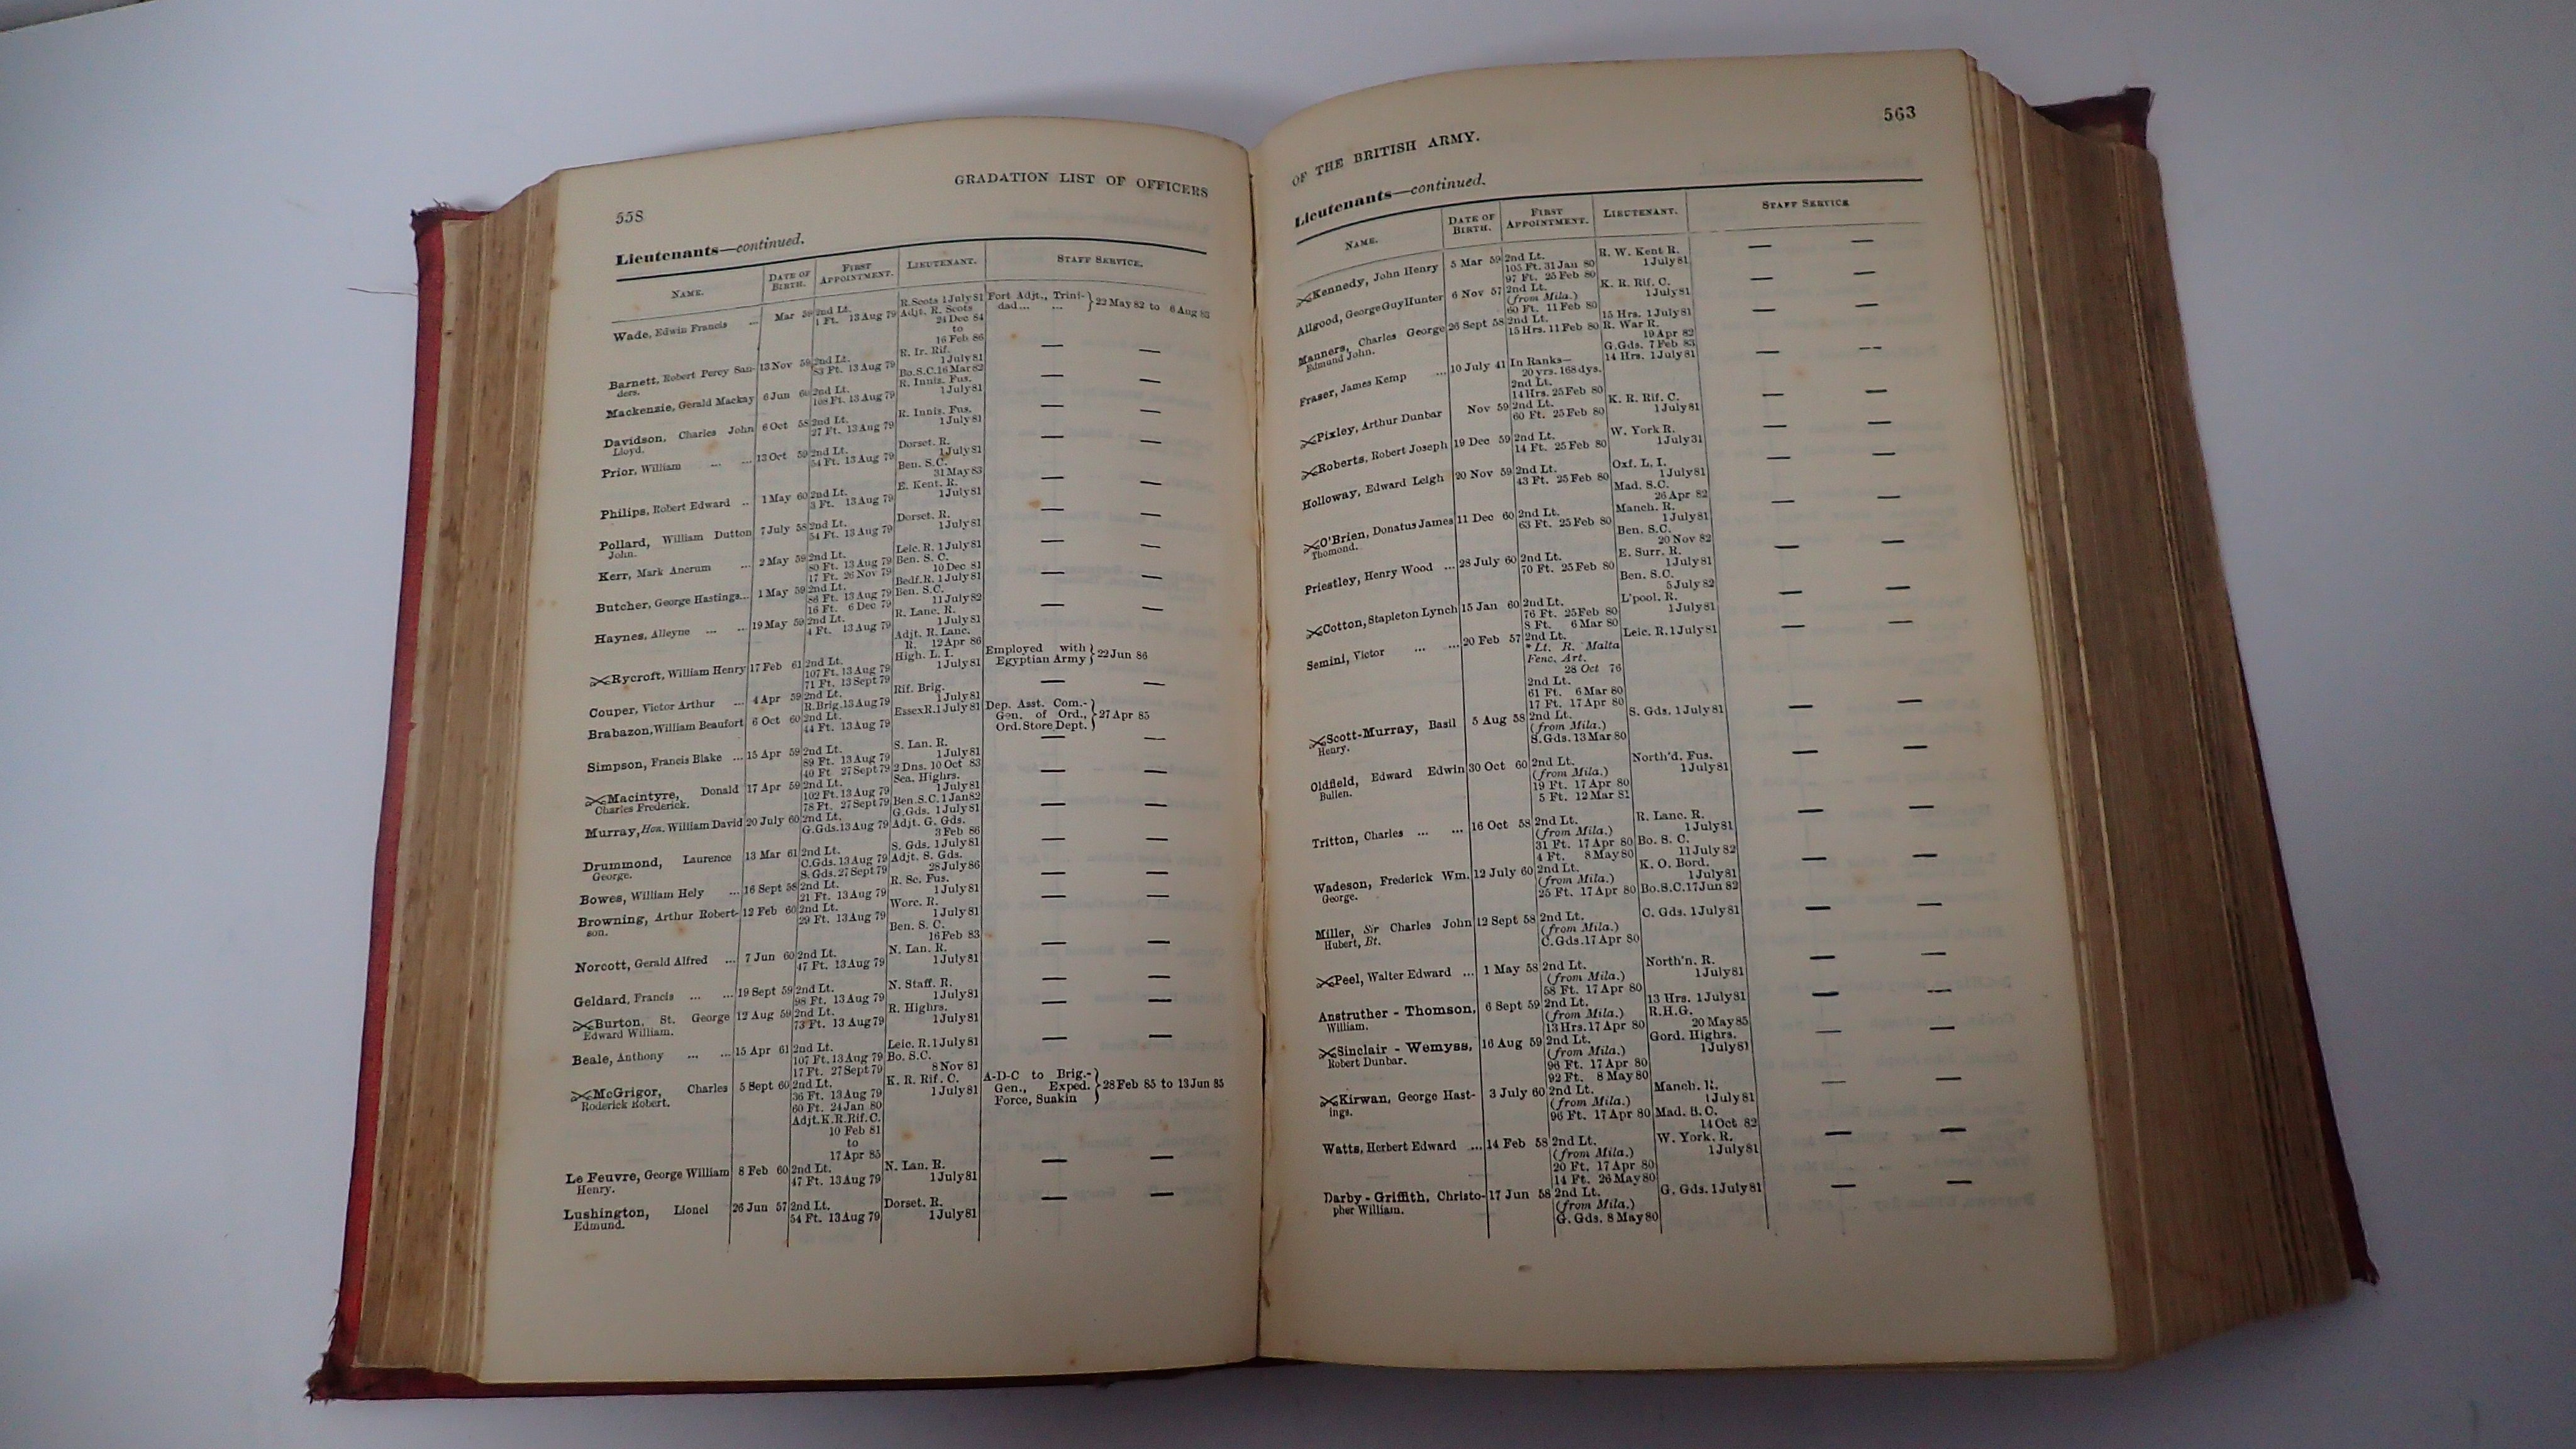 558
GRADATION LIST OF OFFICERS
Lieutenants—continued.
NAME. DATE OF BIRTH. FIRST APPOINTMENT. LIEUTENANT. STAFF SERVICE.
Wade, Edwin Francis ... Mar 59 2nd Lt. R. Scots 1 July 81 Fort Adjt., Trini-} 22 May 82 to 6 Aug 83
1 Ft. 13 Aug 79 Adjt. R. Scots dad ... ...
24 Dec 84
to
16 Feb 86
Barnett, Robert Percy San- 13 Nov 59 2nd Lt. R. Ir. Rif. — —
ders. 83 Ft. 13 Aug 79 1 July 81
Bo.S.C. 16 Mar 82
Mackenzie, Gerald Mackay 6 Jun 60 2nd Lt. R. Innis. Fus. — —
108 Ft. 13 Aug 79 1 July 81
Davidson, Charles John 6 Oct 58 2nd Lt. R. Innis. Fus. — —
Lloyd. 27 Ft. 13 Aug 79 1 July 81
Prior, William ... ... 13 Oct 59 2nd Lt. Dorset. R. — —
54 Ft. 13 Aug 79 1 July 81
Ben. S.C.
31 May 83
Philips, Robert Edward .. 1 May 60 2nd Lt. E. Kent. R. — —
3 Ft. 13 Aug 79 1 July 81
Pollard, William Dutton 7 July 58 2nd Lt. Dorset. R. — —
John. 54 Ft. 13 Aug 79 1 July 81
Kerr, Mark Ancrum ... 2 May 59 2nd Lt. Leic. R. 1 July 81 — —
80 Ft. 13 Aug 79 Ben. S. C.
17 Ft. 26 Nov 79 10 Dec 81
Butcher, George Hastings... 1 May 59 2nd Lt. Bedf. R. 1 July 81 — —
86 Ft. 13 Aug 79 Ben. S.C.
16 Ft. 6 Dec 79 11 July 82
Haynes, Alleyne ... ... 19 May 59 2nd Lt. R. Lanc. R. — —
4 Ft. 13 Aug 79 1 July 81
Adjt. R. Lanc.
R. 12 Apr 86
Rycroft, William Henry 17 Feb 61 2nd Lt. High. L. I. Employed with } 22 Jun 86
107 Ft. 13 Aug 79 1 July 81 Egyptian Army
71 Ft. 13 Sept 79
Couper, Victor Arthur ... 4 Apr 59 2nd Lt. Rif. Brig. — —
R. Brig. 13 Aug 79 1 July 81
Brabazon, William Beaufort 6 Oct 60 2nd Lt. Essex R. 1 July 81 Dep. Asst. Com.-
44 Ft. 13 Aug 79 Gen. of Ord., } 27 Apr 85
Ord. Store Dept.
Simpson, Francis Blake ... 15 Apr 59 2nd Lt. S. Lan. R. — —
89 Ft. 13 Aug 79 1 July 81
40 Ft. 27 Sept 79 2 Dns. 10 Oct 83
Macintyre, Donald 17 Apr 59 2nd Lt. Sea. Highrs. — —
Charles Frederick. 102 Ft. 13 Aug 79 1 July 81
78 Ft. 27 Sept 79 Ben. S.C. 1 Jan 82
Murray, Hon. William David 20 July 60 2nd Lt. G. Gds. 1 July 81 — —
G. Gds. 13 Aug 79 Adjt. G. Gds.
3 Feb 86
Drummond, Laurence 13 Mar 61 2nd Lt. S. Gds. 1 July 81 — —
George. C. Gds. 13 Aug 79 Adjt. S. Gds.
S. Gds. 27 Sept 79 28 July 86
Bowes, William Hely ... 16 Sept 58 2nd Lt. R. Sc. Fus. — —
21 Ft. 13 Aug 79 1 July 81
Browning, Arthur Robert- 12 Feb 60 2nd Lt. Worc. R. — —
son. 29 Ft. 13 Aug 79 1 July 81
Ben. S. C.
16 Feb 83
Norcott, Gerald Alfred ... 7 Jun 60 2nd Lt. N. Lan. R. — —
47 Ft. 13 Aug 79 1 July 81
Geldard, Francis ... ... 19 Sept 59 2nd Lt. N. Staff. R. — —
98 Ft. 13 Aug 79 1 July 81
Burton, St. George 12 Aug 59 2nd Lt. R. Highrs. — —
Edward William. 73 Ft. 13 Aug 79 1 July 81
Beale, Anthony ... ... 15 Apr 61 2nd Lt. Leic. R. 1 July 81 — —
107 Ft. 13 Aug 79 Bo. S.C.
17 Ft. 27 Sept 79 8 Nov 81
McGrigor, Charles 5 Sept 60 2nd Lt. K. R. Rif. C. A-D-C to Brig.-
Roderick Robert. 36 Ft. 13 Aug 79 1 July 81 Gen., Exped. } 28 Feb 85 to 13 Jun 85
60 Ft. 24 Jan 80 Force, Suakin
Adjt. K. R. Rif. C.
10 Feb 81
to
17 Apr 85
Le Feuvre, George William 8 Feb 60 2nd Lt. N. Lan. R. — —
Henry. 47 Ft. 13 Aug 79 1 July 81
Lushington, Lionel 26 Jun 57 2nd Lt. Dorset. R. — —
Edmund. 54 Ft. 13 Aug 79 1 July 81
563
OF THE BRITISH ARMY.
Lieutenants—continued.
NAME. DATE OF BIRTH. FIRST APPOINTMENT. LIEUTENANT. STAFF SERVICE
Kennedy, John Henry 5 Mar 59 2nd Lt. R. W. Kent R. — —
105 Ft. 31 Jan 80 1 July 81
97 Ft. 25 Feb 80
Allgood, George Guy Hunter 6 Nov 57 2nd Lt. K. R. Rif. C. — —
(from Mila.) 1 July 81
60 Ft. 11 Feb 80
Manners, Charles George 26 Sept 58 2nd Lt. 15 Hrs. 1 July 81 — —
Edmund John. 15 Hrs. 11 Feb 80 R. War R.
19 Apr 82
G. Gds. 7 Feb 83
Fraser, James Kemp ... 10 July 41 In Ranks— 14 Hrs. 1 July 81 — —
20 yrs. 168 dys.
2nd Lt.
14 Hrs. 25 Feb 80
Pixley, Arthur Dunbar Nov 59 2nd Lt. K. R. Rif. C. — —
60 Ft. 25 Feb 80 1 July 81
Roberts, Robert Joseph 19 Dec 59 2nd Lt. W. York R. — —
14 Ft. 25 Feb 80 1 July 31
Holloway, Edward Leigh 20 Nov 59 2nd Lt. Oxf. L. I. — —
43 Ft. 25 Feb 80 1 July 81
Mad. S.C.
26 Apr 82
O'Brien, Donatus James 11 Dec 60 2nd Lt. Manch. R. — —
Thomond. 63 Ft. 25 Feb 80 1 July 81
Ben. S.C.
20 Nov 82
Priestley, Henry Wood ... 28 July 60 2nd Lt. E. Surr. R. — —
70 Ft. 25 Feb 80 1 July 81
Ben. S.C.
5 July 82
Cotton, Stapleton Lynch 15 Jan 60 2nd Lt. L'pool. R. — —
76 Ft. 25 Feb 80 1 July 81
8 Ft. 6 Mar 80
Semini, Victor ... ... 20 Feb 57 2nd Lt. Leic. R. 1 July 81 — —
*Lt. R. Malta
Fenc. Art.
28 Oct 76
2nd Lt.
61 Ft. 6 Mar 80
17 Ft. 17 Apr 80
Scott-Murray, Basil 5 Aug 58 2nd Lt. S. Gds. 1 July 81 — —
Henry. (from Mila.)
S. Gds. 13 Mar 80
Oldfield, Edward Edwin 30 Oct 60 2nd Lt. North'd. Fus. — —
Bullen. (from Mila.) 1 July 81
19 Ft. 17 Apr 80
5 Ft. 12 Mar 81
Tritton, Charles ... ... 16 Oct 58 2nd Lt. R. Lanc. R. — —
(from Mila.) 1 July 81
31 Ft. 17 Apr 80 Bo. S. C.
4 Ft. 8 May 80 11 July 82
Wadeson, Frederick Wm. 12 July 60 2nd Lt. K. O. Bord. — —
George. (from Mila.) 1 July 81
25 Ft. 17 Apr 80 Bo. S.C. 17 Jun 82
Miller, Sir Charles John 12 Sept 58 2nd Lt. C. Gds. 1 July 81 — —
Hubert, Bt. (from Mila.)
C. Gds. 17 Apr 80
Peel, Walter Edward ... 1 May 58 2nd Lt. North'n. R. — —
(from Mila.) 1 July 81
58 Ft. 17 Apr 80
Anstruther - Thomson, 6 Sept 59 2nd Lt. 13 Hrs. 1 July 81 — —
William. (from Mila.) R.H.G.
13 Hrs. 17 Apr 80 20 May 85
Sinclair - Wemyss, 16 Aug 59 2nd Lt. Gord. Highrs. — —
Robert Dunbar. (from Mila.) 1 July 81
96 Ft. 17 Apr 80
92 Ft. 8 May 80
Kirwan, George Hast- 3 July 60 2nd Lt. Manch. R. — —
ings. (from Mila.) 1 July 81
96 Ft. 17 Apr 80 Mad. S.C.
14 Oct 82
Watts, Herbert Edward ... 14 Feb 58 2nd Lt. W. York. R. — —
(from Mila.) 1 July 81
20 Ft. 17 Apr 80
14 Ft. 26 May 80
Darby - Griffith, Christo- 17 Jun 58 2nd Lt. G. Gds. 1 July 81 — —
pher William. (from Mila.)
G. Gds. 8 May 80